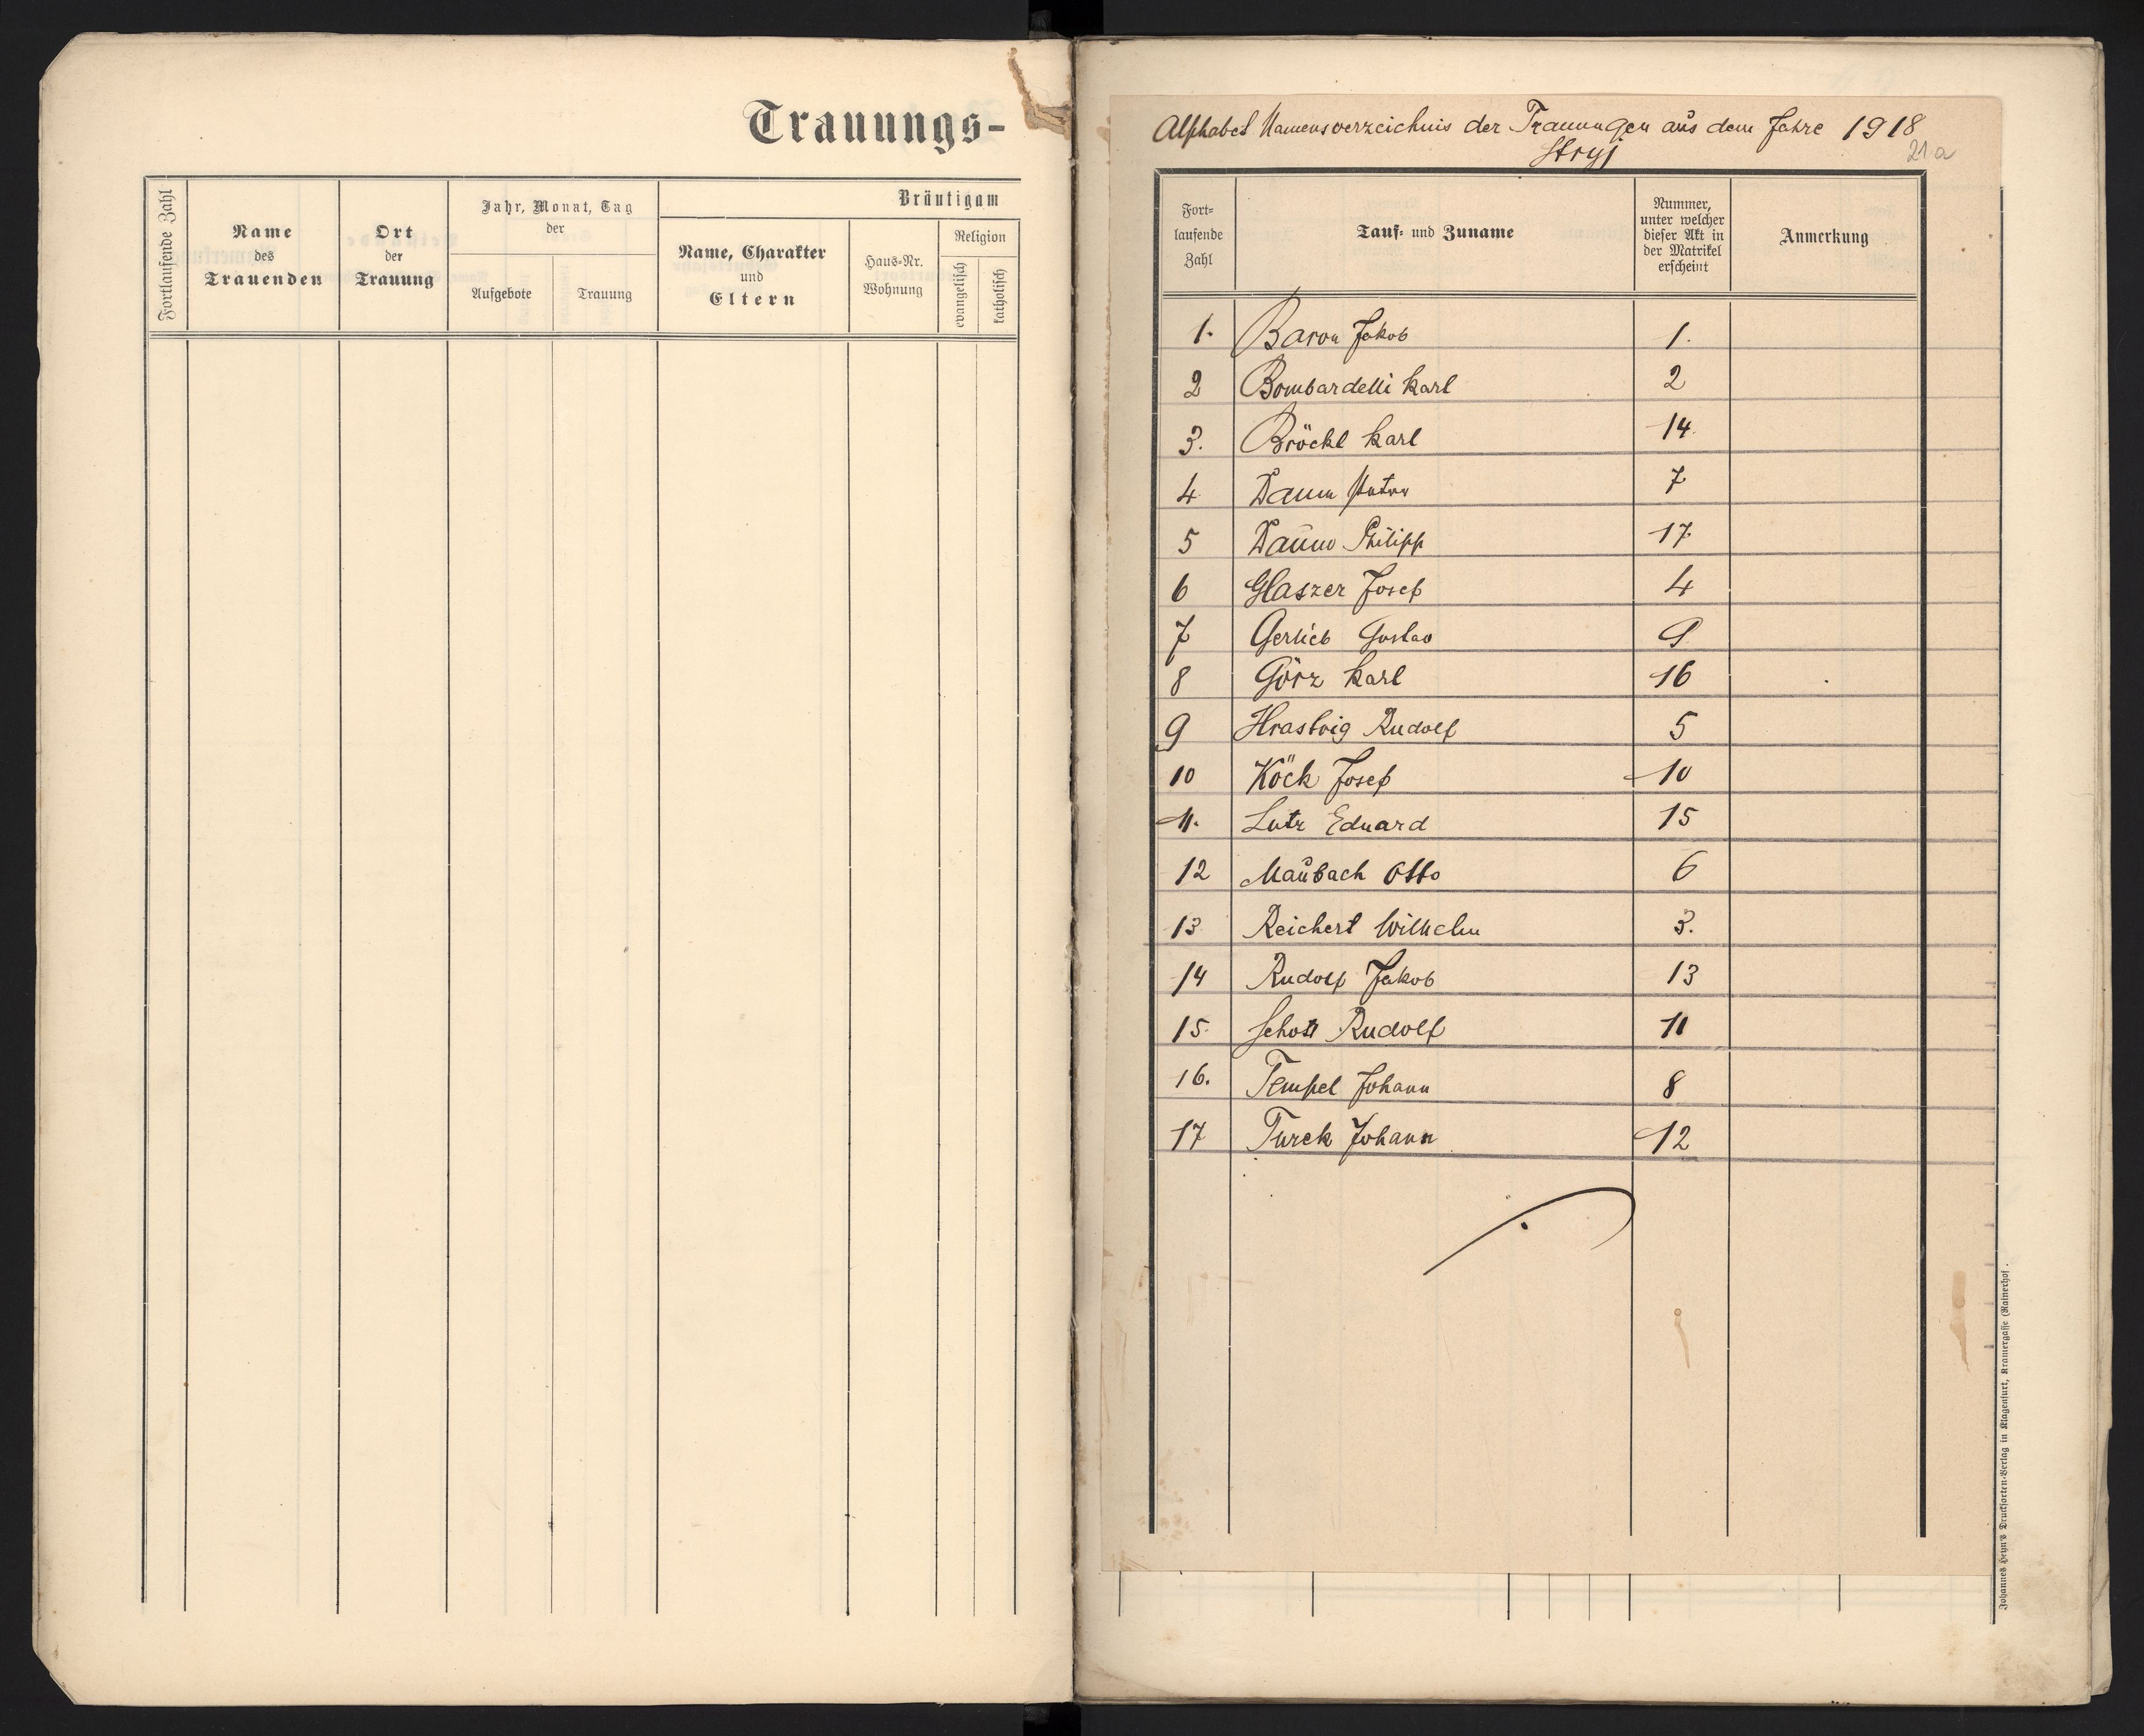 Trauungs-
Fortlaufende Zahl
Name
des
Trauenden
Ort
der
Trauung
Jahr, Monat, Tag
der
Aufgebote
Trauung
Bräutigam
Name, Charakter
und
Eltern
Haus-Nr.
Wohnung
Religion
evangelisch
katholisch
Alphabet Namensverzeichnis der Trauungen aus dem Jahre 1918
Stryj
21a
Fort-
laufende
Zahl
Tauf- und Zuname
Nummer,
unter welcher
dieser Akt in
der Matrikel
erscheint
Anmerkung
1. Baron Jakob 1.
2 Bombardelli Karl 2
3. Bröckl Karl 14
4 Daum 7
5 Philipp 17
6 Glaszer Josef 4
7 Gerlieb Gustav 9
8 Görz Karl 16
9 Rudolf 5
10 Köck Josef 10
11. Lutz Eduard 15
12 Maubach Otto 6
13 Reichert Wilhelm 3.
14 Rudolf Jakob 13
15. Schott Rudolf 11
16. Tempel Johann 8
17 Turek Johann 12
Johannes Heyn's Drucksorten-Verlag in Klagenfurt, Kramergasse (Rainerhof).